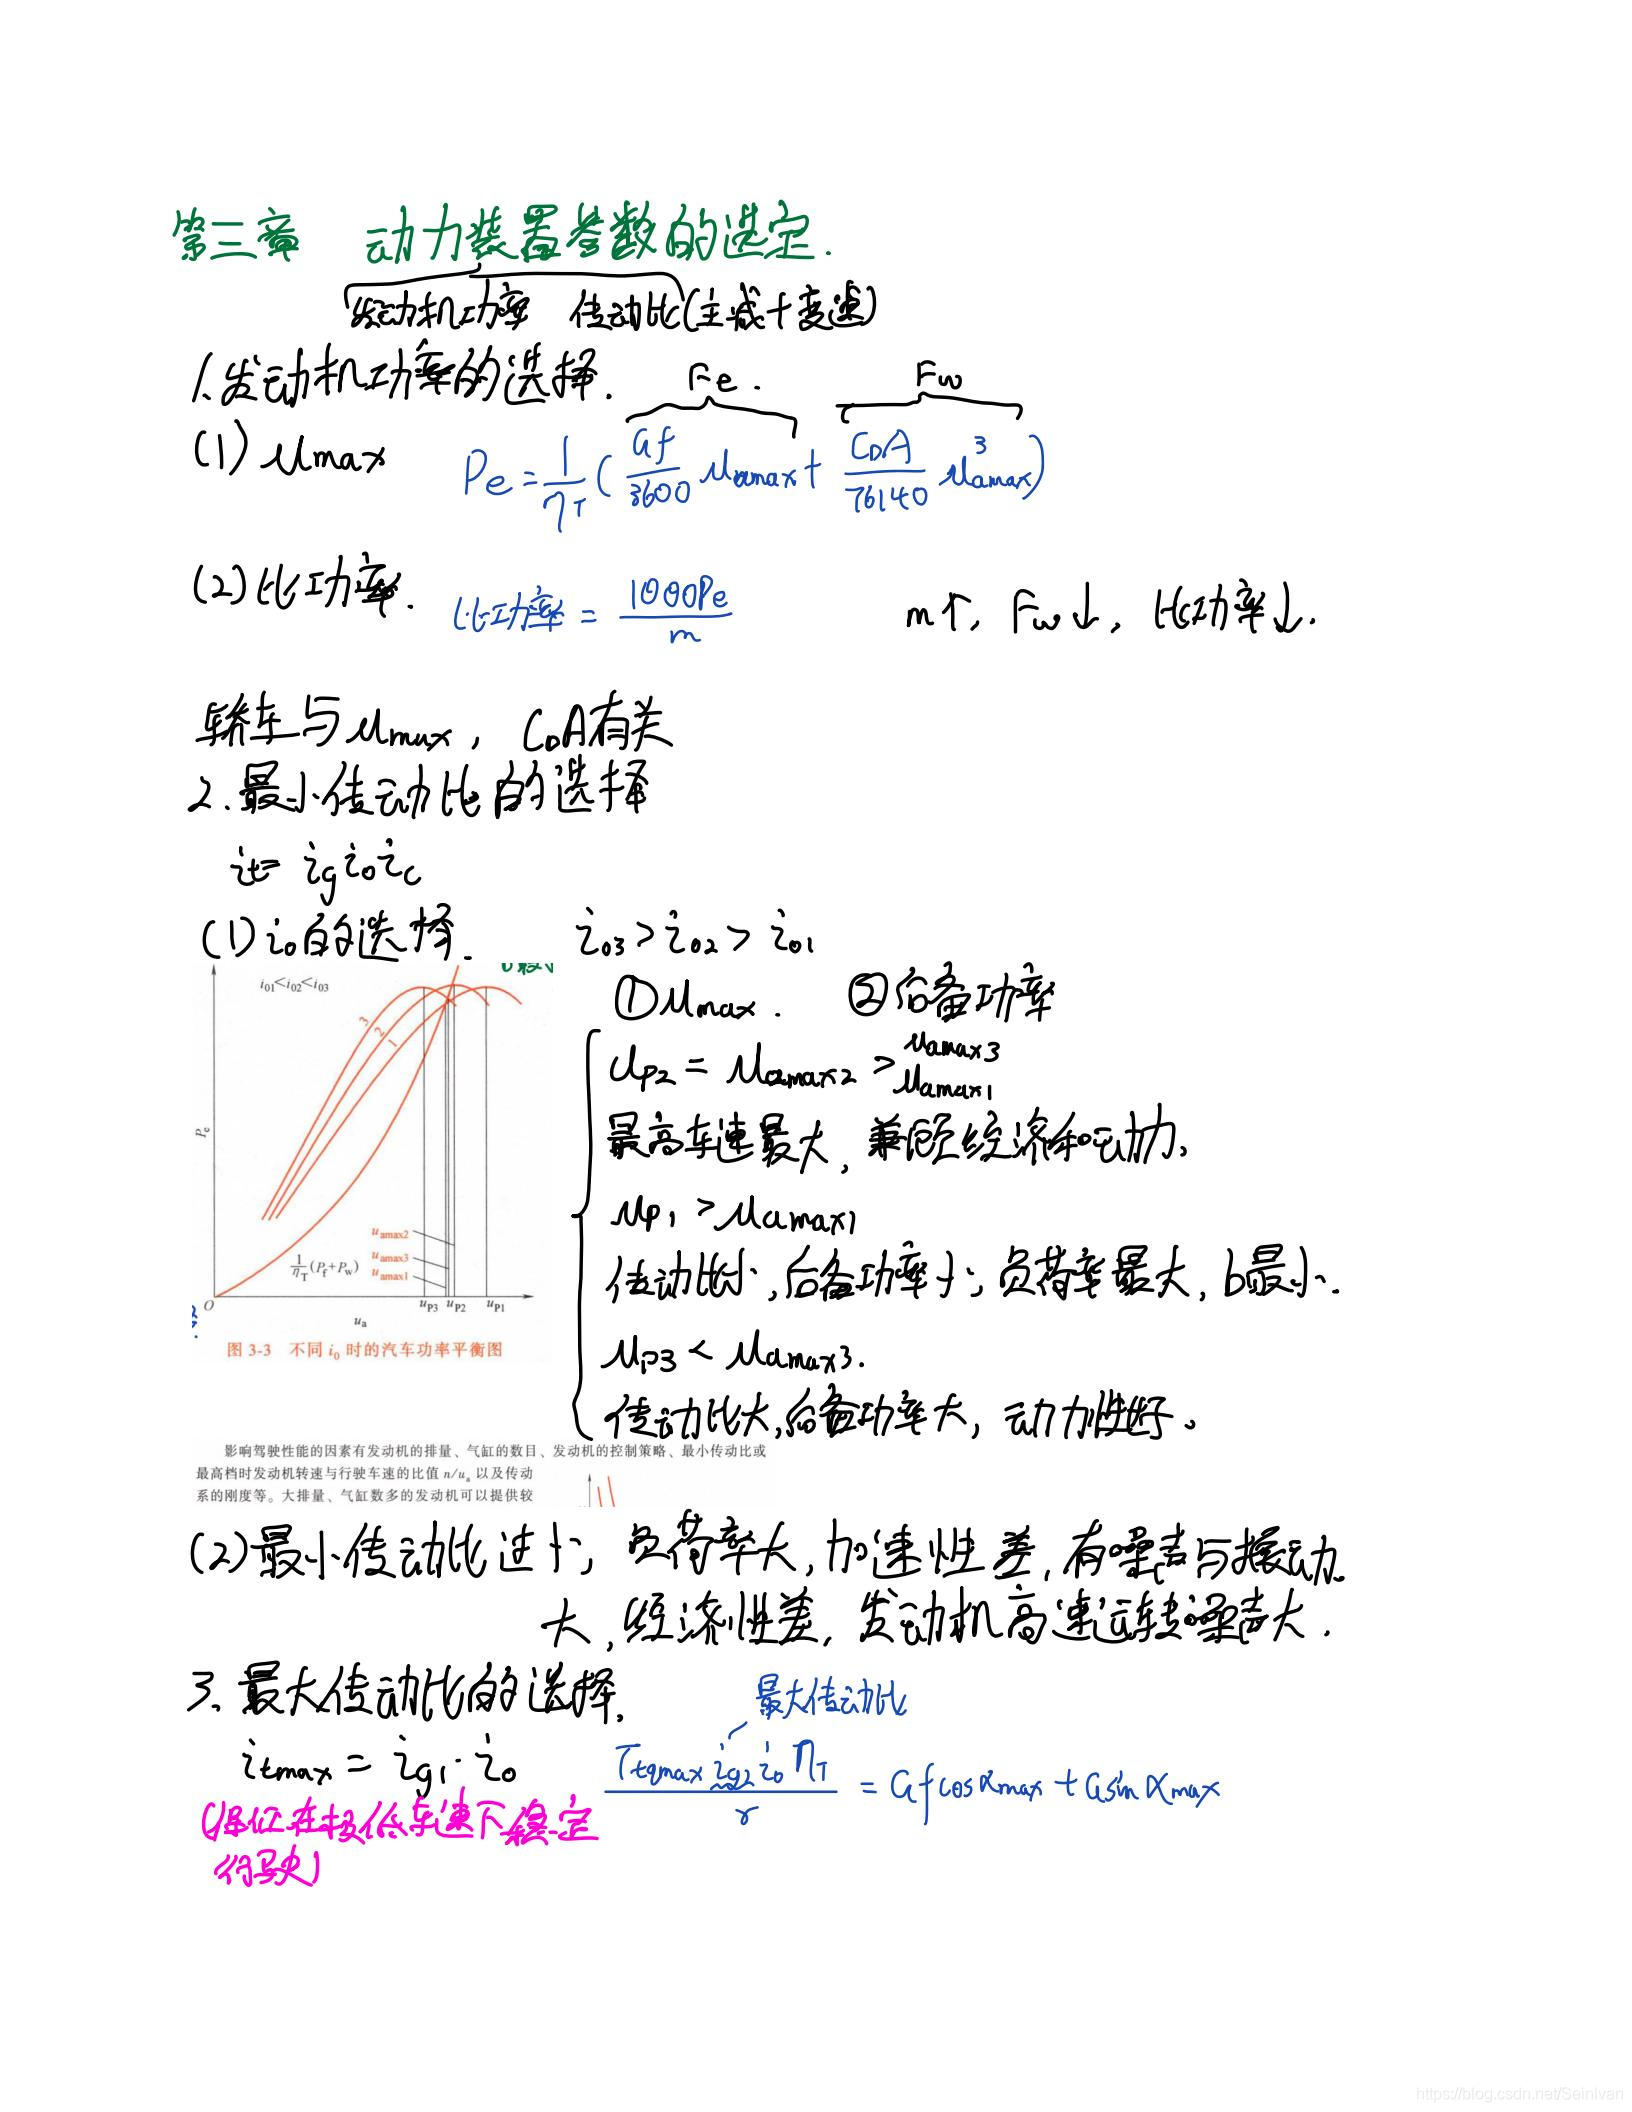 第三章 动力装置参数的选定.
发动机功率 传动比(主减+变速)
1.发动机功率的选择.
Fe. Fw
(1) umax Pe=1/ηT(Gf/3600 uamax+CDA/76140 u³amax)
(2)比功率. 比功率=1000Pe/m m↑, Fw↓, 比功率↓.
轿车与umax, CDA有关
2.最小传动比的选择
it=igi0ic
(1)i0的选择. i03>i02>i01
i01<i02<i03
①umax. ②后备功率
3
2
1
Pe
uamax2
uamax3
uamax1
1/ηT(Pf+Pw)
O uP3 uP2 uP1
ua
图 3-3 不同 i0 时的汽车功率平衡图
uP2=uamax2>uamax3
uamax1
最高车速最大, 兼顾经济和动力.
uP1>uamax1
传动比小,后备功率小;负荷率最大,b最小.
uP3<uamax3.
传动比大,后备功率大, 动力性好。
影响驾驶性能的因素有发动机的排量、气缸的数目、发动机的控制策略、最小传动比或
最高档时发动机转速与行驶车速的比值 n/ua 以及传动
系的刚度等。大排量、气缸数多的发动机可以提供较
(2)最小传动比过小; 负荷率大,加速性差,有噪声与振动.
大,经济性差, 发动机高速运转噪声大.
3.最大传动比的选择.
最大传动比
itmax=ig1·i0 Ttqmax ig1 i0 ηT/r=Gfcosαmax+Gsinαmax
(保证在极低车速下稳定
行驶)
https://blog.csdn.net/SeinIvan